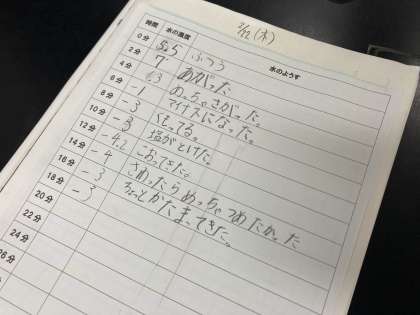 2/12 (木)
時間 水の温度 水のようす
0分 5.5 ふつう
2分 7 あがった
4分 1.3 めっちゃさがった。
6分 -1 マイナスになった。
8分 -3
10分 -3 塩がとけた。
12分 -4.2 こおってきた。
14分 -4 さわったらめっちゃつめたかった
16分 -3 ちょっとかたまってきた。
18分 -3
20分
22分
24分
26分